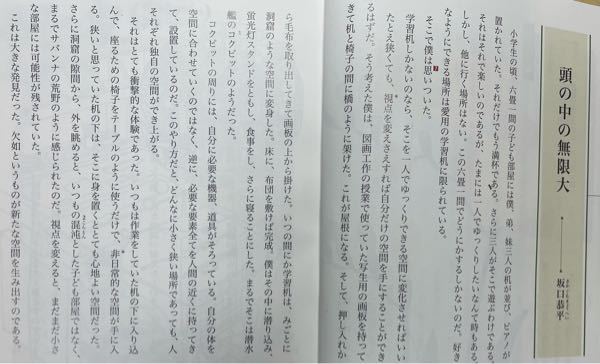 頭の中の無限大
坂口恭平
さかぐちきょうへい
小学生の頃、六畳一間の子ども部屋には僕、弟、妹三人の机が並び、ピアノも
置かれていた。それだけでもう満杯である。さらに三人がそこで遊ぶわけである。
それはそれで楽しいのであるが、たまには一人でゆっくりしたいなんて時もある。
しかし、他に行く場所はない。この六畳一間でどうにかするしかないのだ。好き
なようにできる場所は愛用の学習机に限られている。
そこで僕は思いついた。
学習机しかないのなら、そこを一人でゆっくりできる空間に変化させればいい。
たとえ狭くても、視点を変えさえすれば自分だけの空間を手にすることができ
るはずだ。そう考えた僕は、図画工作の授業で使っていた写生用の画板を持って
きて机と椅子の間に橋のように架けた。これが屋根になる。そして、押し入れか
ら毛布を取り出してきて画板の上から掛けた。いつの間にか学習机は、みごとに
洞窟のような空間に変身した。床に、布団を敷けば完成。僕はその中に潜り込み、
蛍光灯スタンドをともし、食事をし、さらに寝ることにした。まるでそこは潜水
艦のコクピットのようだった。
コクピットの周りには、自分に必要な機器、道具がそろっている。自分の体を
空間に合わせていくのではなく、逆に、必要な要素全てを人間の近くに持ってき
て、設置しているのだ。このやり方だと、どんなに小さく狭い場所であっても、人
それぞれ独自の空間ができ上がる。
それはとても衝撃的な体験であった。いつもは作業をしていた机の下に入り込
んで、座るための椅子をテーブルのように使うだけで、非日常的な空間が手に入
る。狭いと思っていた机の下は、そこに身を置くととても心地よい空間だった。
さらに洞窟の隙間から、外を眺めると、いつもの混沌とした子ども部屋ではなく、
まるでサバンナの荒野のように感じられたのだ。視点を変えると、まだまだ小さ
な部屋には可能性が残されていた。
これは大きな発見だった。欠如というものが新たな空間を生み出すのである。